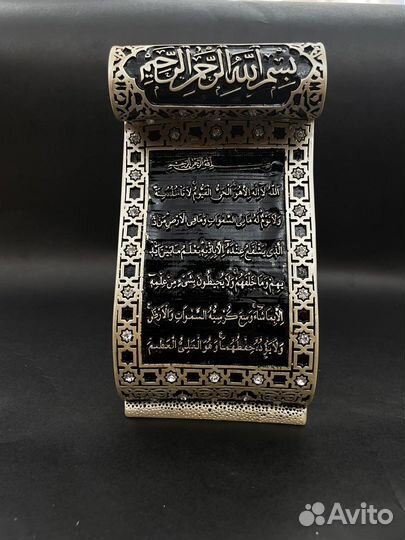 بسم الله الرحمن الرحيم
الله لا اله الا هو الحي القيوم لا تاخذه سنة
ولا نوم له ما في السموات وما في الارض من ذا
الذي يشفع عنده الا باذنه يعلم ما بين ايد
يهم وما خلفهم ولا يحيطون بشيء من علمه
الا بما شاء وسع كرسيه السموات والارض
ولا يؤده حفظهما وهو العلي العظيم
Avito